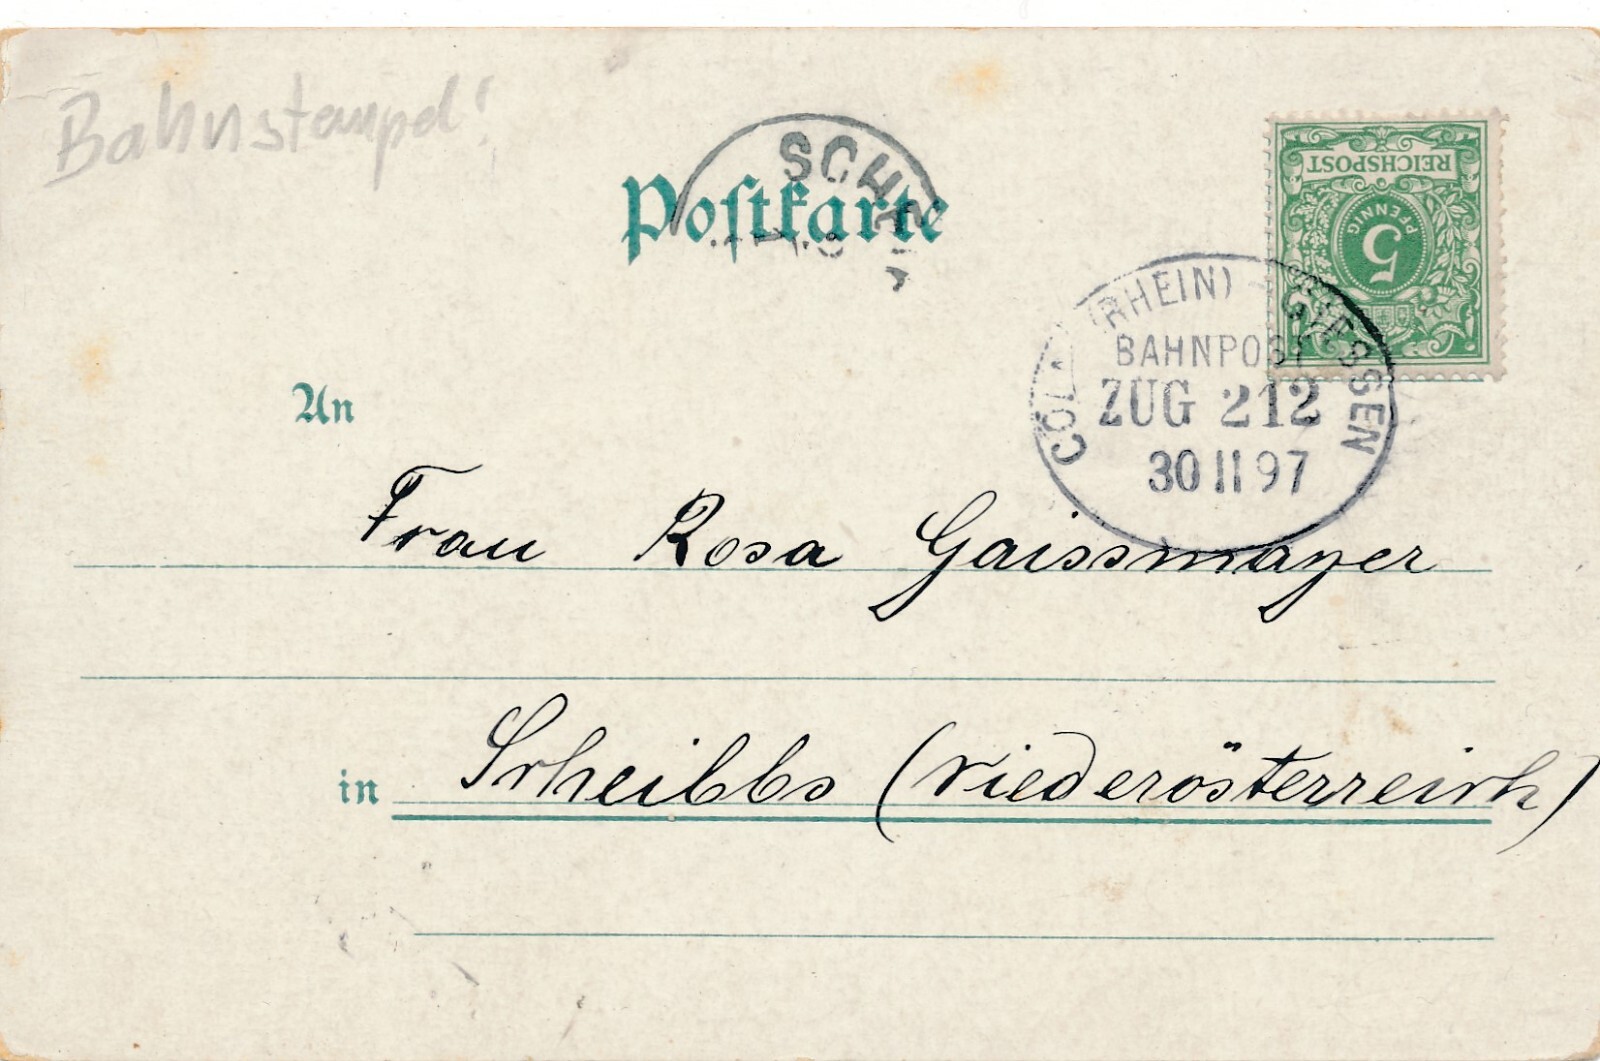 Bahnstempel!
Postkarte
REICHSPOST
5
PFENNIG
CÖLN (RHEIN) - GIESSEN
BAHNPOST
ZUG 212
30 11 97
An
Frau Rosa Gaissmayer
in Scheibbs (Niederösterreich)